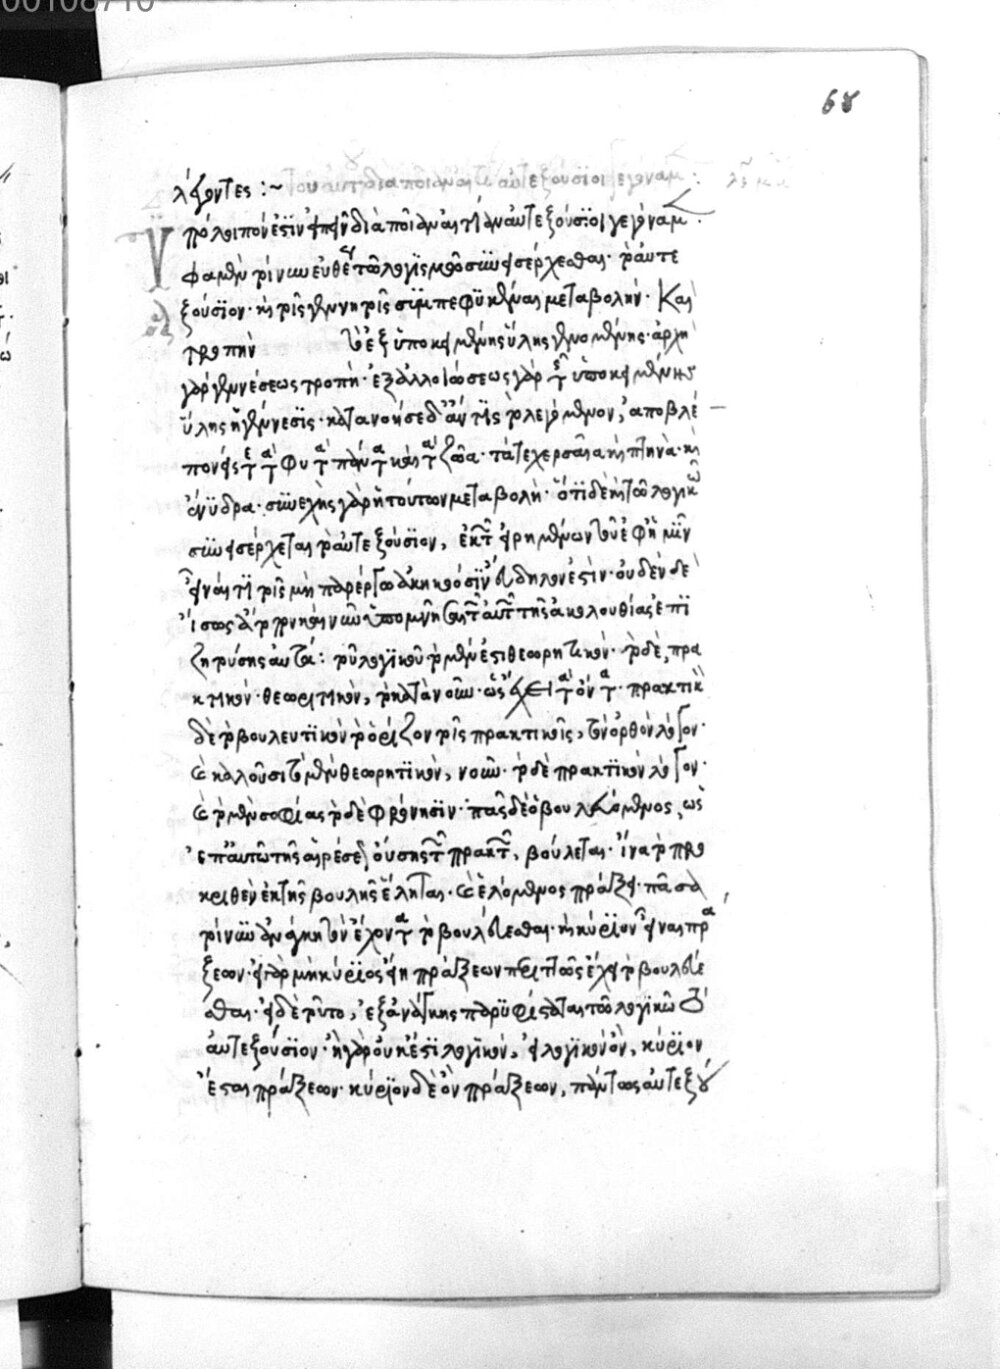 λέγοντες :~
πρόλοιπόν ἐστὶν εἰπεῖν διὰ ποίαν αἰτίαν αὐτεξούσϊοι γεγόναμ·
φαμὲν τοίνυν εὐθέ τῶ λογϊσμῶ συνεισέρχεσθαι· τὸ αὐτε
ξούσϊον· καὶ τοῖς γεννητοῖς συμπεφϋκέναι μεταβολήν· Καὶ
τροπὴν τ ἐξ ὑποκειμένης ὕλης γενομένης· ἀρχὴ
γὰρ γεννέσεως τροπή· ἐξ ἀλλοιώσεως γὰρ τῆς ὑποκειμένης
ὕλης ἡ γέννεσϊς· κατανοήσει δ' ἄν τϊς τὸ λεγόμενον, ἀποβλέ
πον εἴς τε τὰ φυτὰ πάντα καὶ τὰ ζῶα· τά τε χερσαῖα καὶ πτηνὰ· καὶ
ἔνϋδρα· συνεχὴς γὰρ ἡ τούτων μεταβολὴ· ὅτϊ δὲ καὶ τῶ λογικῶ
συνεισέρχεται τὸ αὐτεξούσϊον, ἐκ τῶν εἰρημένων τοῦ ἐφ' ἡμῖν
εἶναί τϊ τοῖς μὴ παρέργω ἀκηκοόσϊν εὔδηλον ἐστὶν· οὐδὲν δὲ
ἴσως ἄτοπον καὶ νῦν ὑπομνῆσαι τῶν αὐτῶν τῆς ἀκολουθίας ἐπϊ
ζητούσης αὐτά: τοῦ λογϊκοῦ τὸ μέν ἐστι θεωρητικόν· τὸ δὲ, πρα
κτικόν· θεωριτικὸν, τὸ κατὰ νοῦν· ὡς ἔχει τὰ ὄντα· πρακτικὸ
δὲ τὸ βουλευτϊκὸν τὸ ὁρίζον τοῖς πρακτικοῖς, τὸν ὀρθὸν λόγον·
καὶ καλοῦσι τὸ μὲν θεωρητϊκὸν, νοῦν· τὸ δὲ πρακτϊκὸν λόγον·
καὶ τὸ μὲν σοφίας τὸ δὲ φρόνησϊν· πᾶς δὲ ὁ βουλευόμενος, ὡς
ἐπ' αὐτῶ τῆς αἱρέσε οὔσης τῶν πρακτῶν, βούλεται· ἵνα τὸ προ
κριθὲν ἐκ τῆς βουλῆς ἕληται· καὶ ἑλόμενος πράξει· πᾶσα
τοίνυν ἀνάγκη τὸν ἔχοντα τὸ βουλεύεσθαι· καὶ κύρϊον εἶναι πρά
ξεων· εἰ γὰρ μὴ κύρϊος εἴη πράξεων περιττῶς ἔχει τὸ βουλεύε
σθαι· εἰ δὲ τοῦτο, ἐξ ἀνάγκης παρϋφίσταται τῶ λογϊκῶ τὸ
αὐτεξούσϊον· ἢ γὰρ οὐκ ἔστϊ λογϊκὸν, ἢ λογϊκὸν ὂν, κύρϊον
ἔσται πράξεων· κύρϊον δὲ ὂν πράξεων, πάντως αὐτεξού